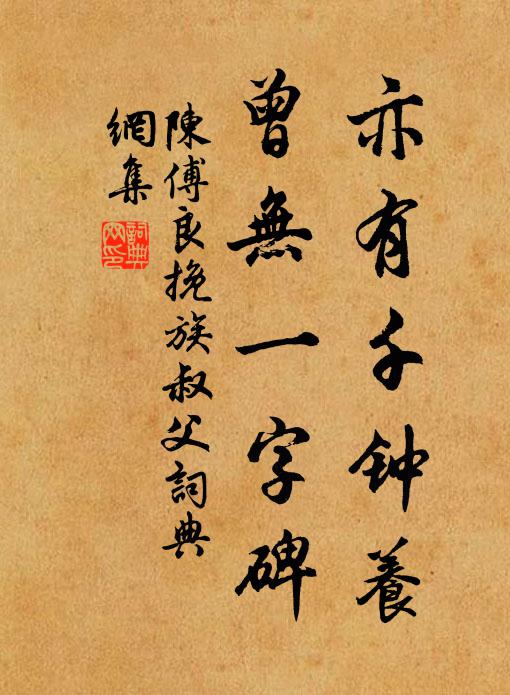 亦有千钟養
曾無一字碑
陳傅良挽族叔父詞典
網集
詞典
网印